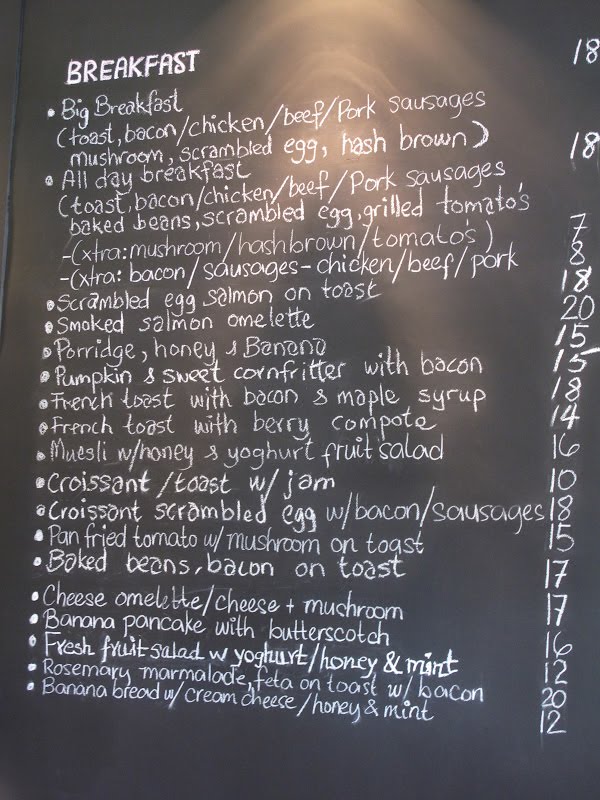 BREAKFAST
• Big Breakfast 18
(toast, bacon/chicken/beef/Pork sausages
mushroom, scrambled egg, hash brown)
• All day breakfast 18
(toast, bacon/chicken/beef/Pork sausages
baked beans, scrambled egg, grilled tomato's
-(xtra: mushroom/hashbrown/tomato's) 7
-(xtra: bacon/sausages-chicken/beef/pork 8
• Scrambled egg salmon on toast 18
• Smoked salmon omelette 20
• Porridge, honey & Banana 15
• Pumpkin & sweet cornfritter with bacon 15
• French toast with bacon & maple syrup 18
• French toast with berry compote 14
• Muesli w/honey & yoghurt fruit salad 16
• Croissant/toast w/ jam 10
• Croissant scrambled egg w/bacon/sausages 18
• Pan fried tomato w/ mushroom on toast 15
• Baked beans, bacon on toast 17
• Cheese omelette/cheese + mushroom 17
• Banana pancake with butterscotch 16
• Fresh fruit salad w yoghurt/honey & mint 12
• Rosemary marmalade, feta on toast w/ bacon 20
• Banana bread w/ cream cheese/honey & mint 12